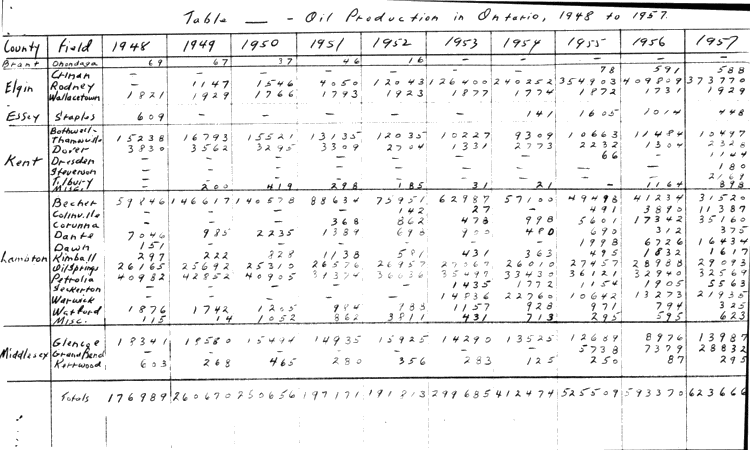 Table — - Oil Production in Ontario, 1948 to 1957.
County Field 1948 1949 1950 1951 1952 1953 1954 1955 1956 1957
Brant Onondaga 69 67 37 46 16 - - - - -
Crinan - - - - - - - 78 591 588
Elgin Rodney - 1147 1546 4050 12043 126400 240252 354903 409809 373770
Wallacetown 1821 1929 1766 1793 1923 1877 1774 1872 1731 1929
Essex Staples 609 - - - - - 141 1605 1014 448
Bothwell-
Thamesville 15238 16793 15521 13135 12035 10227 9309 10663 11484 10497
Kent Dover 3830 3562 3295 3309 2704 1331 2773 2232 1304 2328
Dresden - - - - - - - 66 - 1144
Stevenson - - - - - - - - - 180
Tilbury - - - - - - - - - 2169
Misc. - 200 419 298 185 31 21 - 1164 898
Becher 59846 146617 140578 88634 75951 62987 57100 49498 41234 31520
Colinville - - - - 142 27 - 491 3890 11387
Corunna - - - 368 862 478 998 5601 17342 35160
Dante 7046 985 2235 1389 698 900 480 690 312 375
Dawn 151 - - - - - - 1998 6726 16434
Lambton Kimball 297 222 828 1138 581 431 363 495 1832 1617
Oil Springs 26165 25692 25310 26576 26957 27067 26010 27457 28988 29093
Petrolia 40982 42852 40905 31374 36636 35497 33430 36121 32940 32569
Seckerton - - - - - 1435 1772 1154 1905 5563
Warwick - - - - - 14836 22760 10642 13273 21935
Watford 1876 1742 1205 984 188 1157 928 971 794 325
Misc. 115 14 1052 862 3811 431 713 295 595 623
Glencoe 18341 18580 15494 14935 15925 14290 13525 12609 8976 13987
Middlesex Grand Bend - - - - - - - 5738 7379 28832
Kerrwood 603 268 465 280 356 283 125 250 87 295
Totals 176989 260670 250656 197171 191813 299685 412474 525509 593370 623666